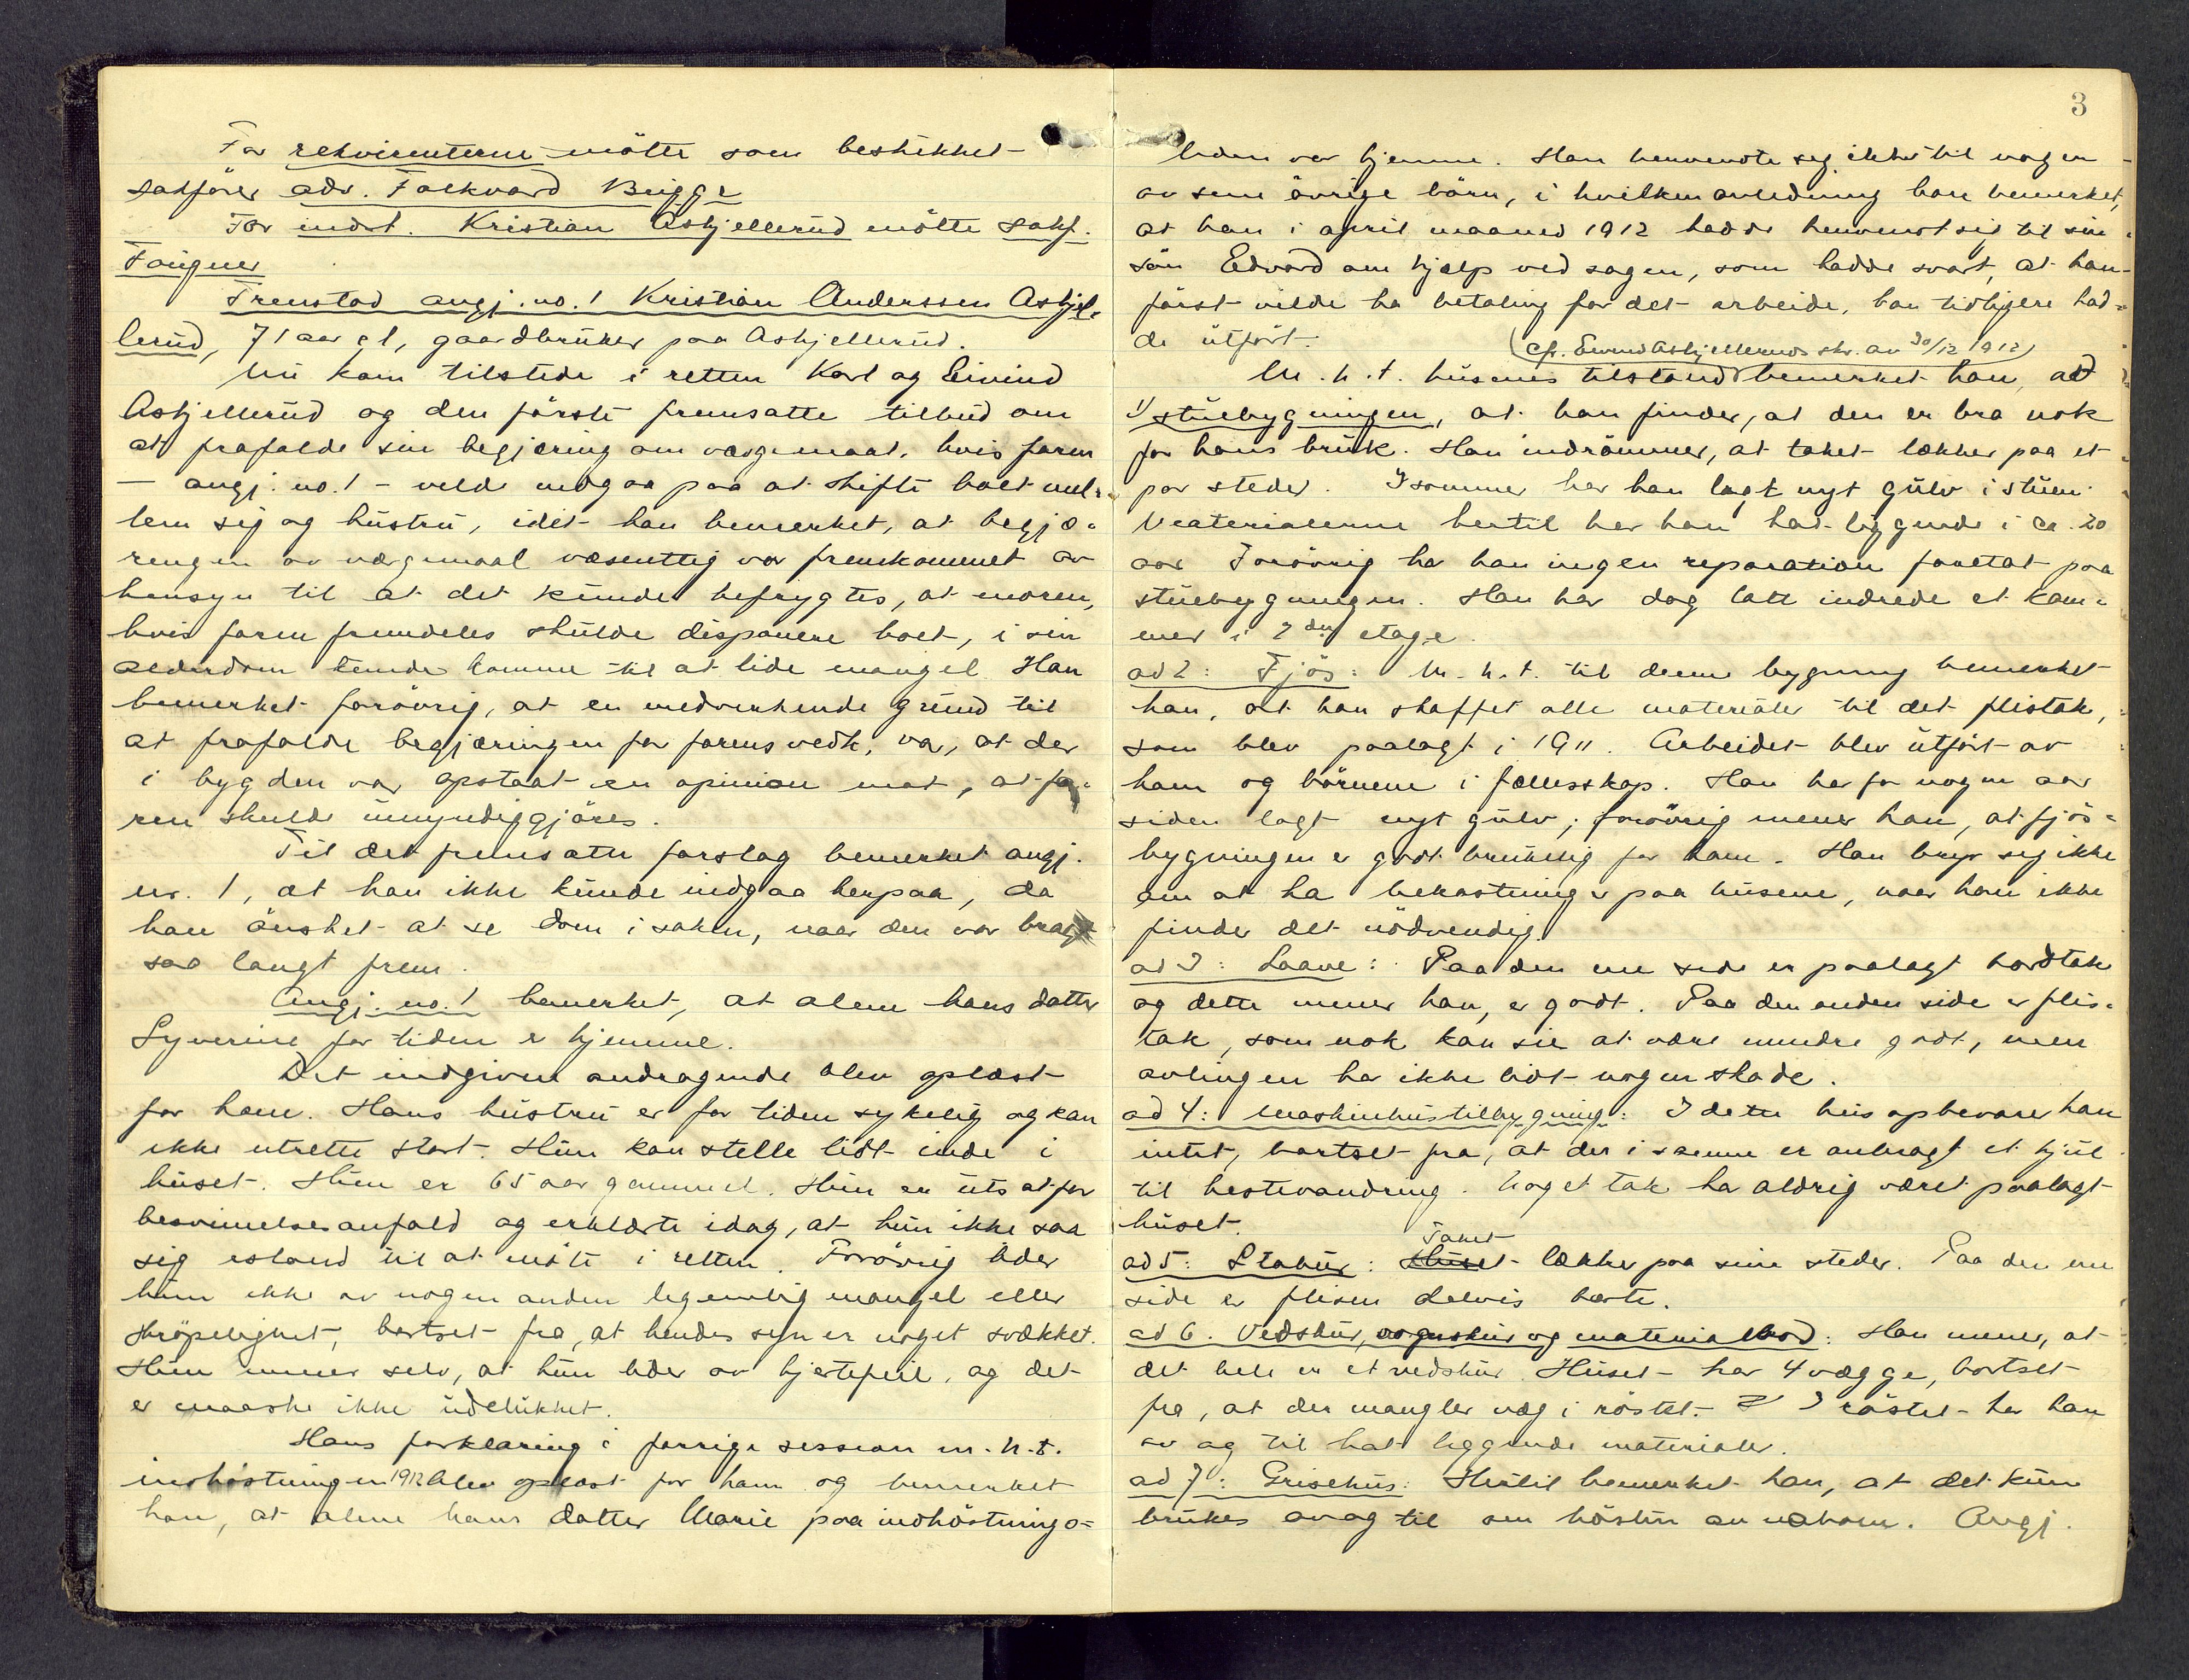 For rekvirenterne mötte som beskikket
sakförer adv. Folkvard Brigge
For indst. Kristian Askjellerud mötte sakf.
Fougner
Fremstod angj. no. 1 Kristian Anderssen Askjel-
lerud, 71 aar gl, gaardbruker paa Askjellerud.
Nu kom tilstede i retten Karl og Eivind
Askjellerud og den förste fremsatte tilbud om
at frafalde sin begjæring om vægemaal, hvis faren
- angj. no. 1 - vilde indgaa paa at skifte boet mel-
lem sig og hustru, idet han bemerket, at begjæ-
ringen av værgemaal væsentlig var fremkommet av
hensyn til at det kunde befrygtes, at moren,
hvis faren fremdeles skulde disponere boet, i sin
alderdom kunde komme til at lide mangel. Han
bemerket forövrig, at en medvirkende grund til
at frafalde begjæringen for farens vedk. var, at der
i bygden var opstaat en opinion mot, at fa-
ren skulde umyndiggjöres.
Til det fremsatte forslag bemerket angj.
nr. 1, at han ikke kunde indgaa herpaa, da
han önsket at se dom i saken, naar den var bragt
saa langt frem.
Angj. no. 1 bemerket, at alene hans datter
Syverine for tiden er hjemme.
Det indgivne andragende blev oplæst
for ham. Hans hustru er for tiden sykelig og kan
ikke utrette stort. Hun kan stelle lidt inde i
huset. Hun er 65 aar gammel. Hun er utsat for
besvimelsesanfald og erklærte idag, at hun ikke saa
sig istand til at möte i retten. Forövrig lider
hun ikke av nogen anden legemlig mangel eller
skröpelighet, bortset fra, at hendes syn er noget svækket.
Hun mener selv, at hun lider av hjertefeil, og det
er maaske ikke udelukket.
Hans forklaring i forrige session m.h.t.
indhöstningen 1912 blev oplæst for ham og bemerket
han, at alene hans datter Marie paa indhöstnings-
3
tiden var hjemme. Han henvendte sig ikke til nogen
av sine övrige börn, i hvilken anledning han bemerket,
at han i april maaned 1912 hadde henvendt sig til sin
sön Edvard om hjælp ved sagen, som hadde svart, at han
först vilde ha betaling for det arbeide, han tidligere had-
de utfört.
(cfr. Eivind Askjelleruds skr. av 30/12 1912)
M.h.t. husenes tilstand bemerket han, ad
1/ stuebygningen, at han finder, at den er bra nok
for hans bruk. Han indrömmer, at taket lækker paa et
par steder. I sommer har han lagt nyt gulv i stuen.
Materialerne hertil har han hat liggende i ca. 20
aar. Forövrig har han ingen reparation foretat paa
stuebygningen. Han har dog latt indrede et kam-
mer i 2den etage.
ad 2: Fjös: M.h.t. til denne bygning bemerket
han, at han skaffet alle materialer til det flistak,
som blev paalagt i 1911. Arbeidet blev utfört av
ham og börnene i fællesskap. Han har for nogen aar
siden lagt nyt gulv; forövrig mener han, at fjös-
bygningen er godt brukelig for ham. Han bryr sig ikke
om at ha bekostninger paa husene, naar han ikke
finder det nödvendig.
ad 3: Laave: Paa den ene side er paalagt bordtak
og dette mener han, er godt. Paa den anden side er flis-
tak, som nok kan sies at være mindre godt, men
avlingen har ikke lidt nogen skade.
ad 4: Maskinhustilbygning: I dette hus opbevarer han
intet, bortset fra, at der i samme er anbragt et hjul
til hestevandring. Noget tak har aldrig været paalagt
huset.
ad 5: Stabur: Taket lækker paa sine steder. Paa den ene
side er flisen delvis borte.
ad 6. Vedskur, vognskur og materialbod: Han mener, at
det hele er et vedskur. Huset har 4 vægge, bortset
fra, at der mangler væg i röstet. I röstet har han
av og til hat liggende materialer.
ad 7: Grisehus: Hertil bemerket han, at det kun
brukes av og til om hösten Angj.